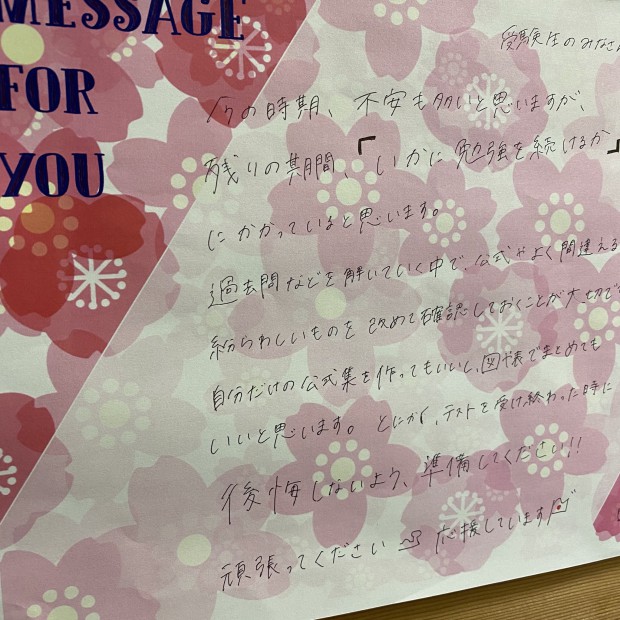 MESSAGE
FOR
YOU
受験生のみなさん
今の時期、不安も多いと思いますが、
残りの期間、「いかに勉強を続けるか」
にかかっていると思います。
過去問などを解いていく中で、公式やよく間違える
紛らわしいものを改めて確認しておくことが大切で
自分だけの公式集を作ってもいいし、図や表でまとめても
いいと思います。とにかく、テストを受け終わった時に
後悔しないよう、準備してください!!
頑張ってください 応援しています